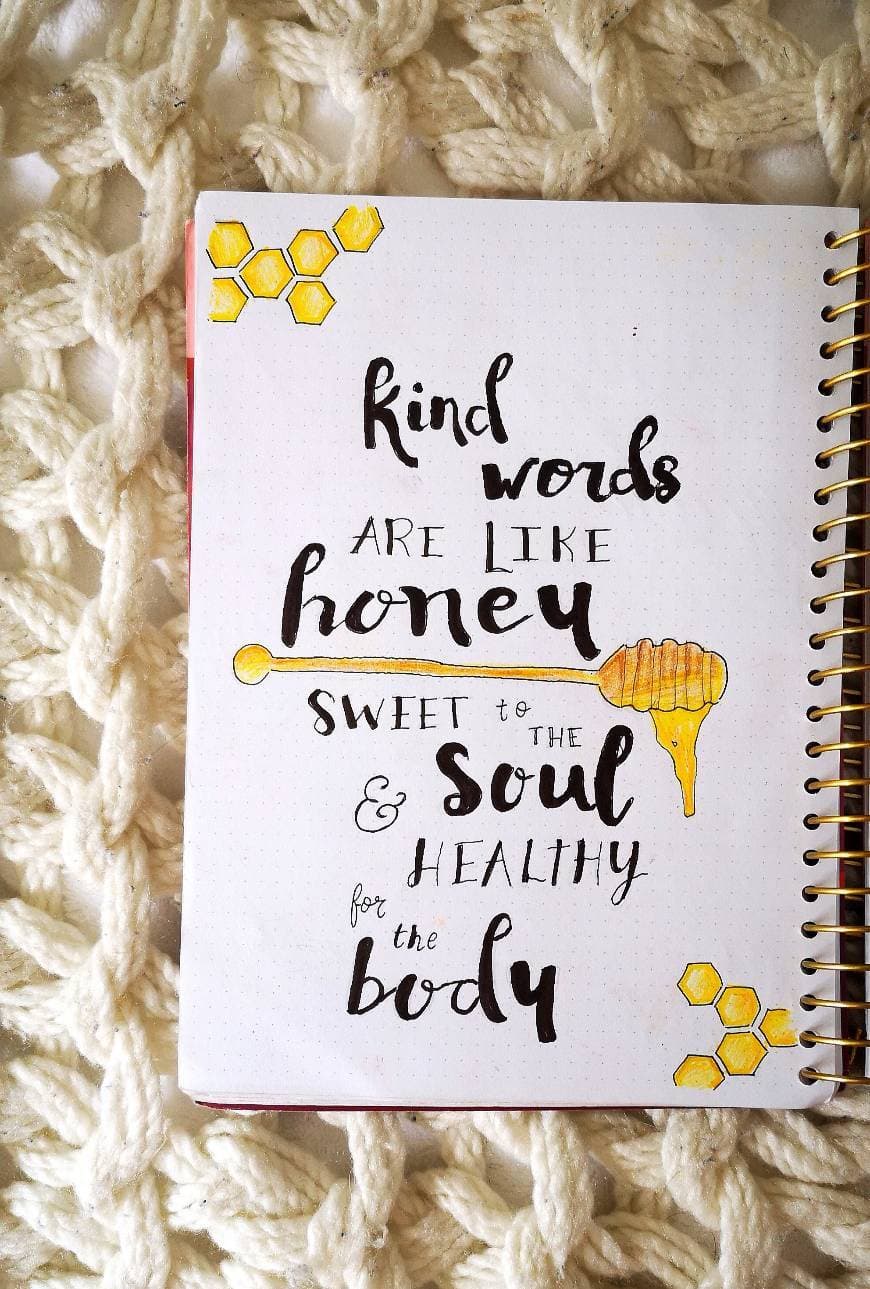 kind
words
ARE LIKE
honey
SWEET to
THE
& Soul
HEALTHY
for
the
body